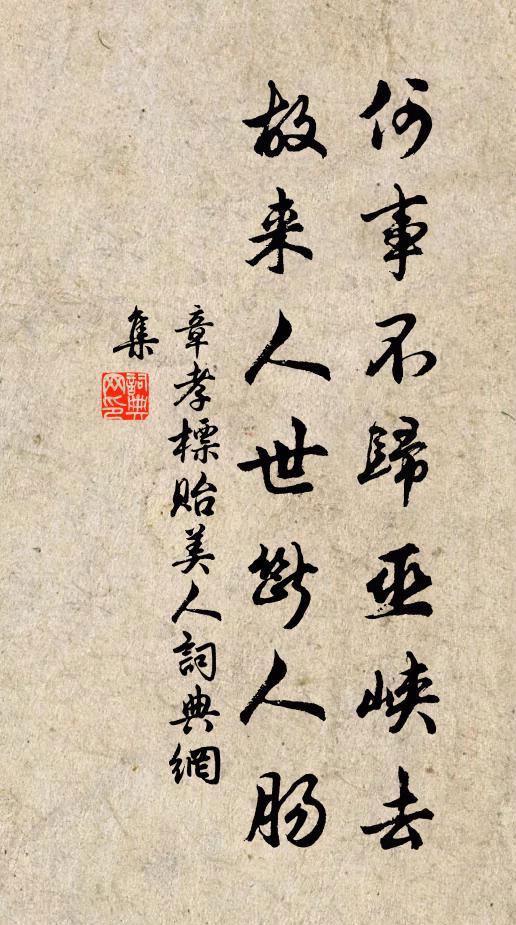 何事不歸巫峽去
故来人世斷人肠
章孝標貽美人詞典網
集
詞典
网印